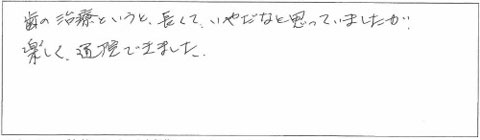 歯の治療というと、長くて、いやだなと思っていましたが、
楽しく、通院できました。